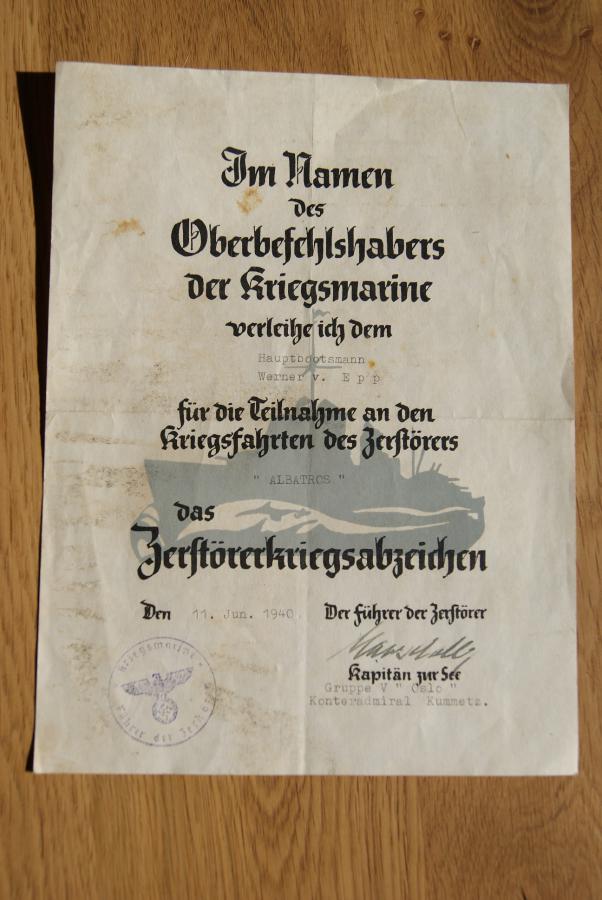 Im Namen
des
Oberbefehlshabers
der Kriegsmarine
verleihe ich dem
Hauptbootsmann
Werner v. E p p
für die Teilnahme an den
Kriegsfahrten des Zerstörers
" ALBATROS "
das
Zerstörerkriegsabzeichen
Den 11. Jun. 1940. Der Führer der Zerstörer
Kapitän zur See
Gruppe V " Oslo "
Konteradmiral Kummetz.
Kriegsmarine
Führer der Zerstörer